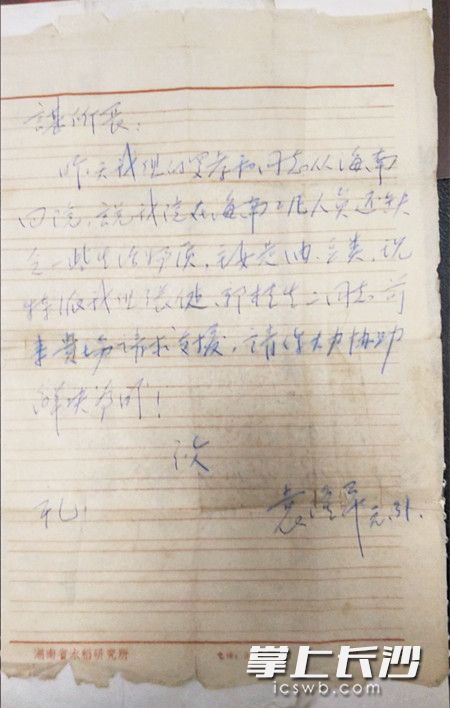 谌所长：
昨天我组的罗孝和同志从海南
回院，说我院在海南工作人员还缺
乏一些生活物质，主要是油、鱼类，现
特派我组张健、郭桂生二同志前
来贵场请求支援，请你大力协助
解决为盼！
致
礼！
袁隆平 元.31.
湖南省水稻研究所
电话：
掌上长沙
icswb.com